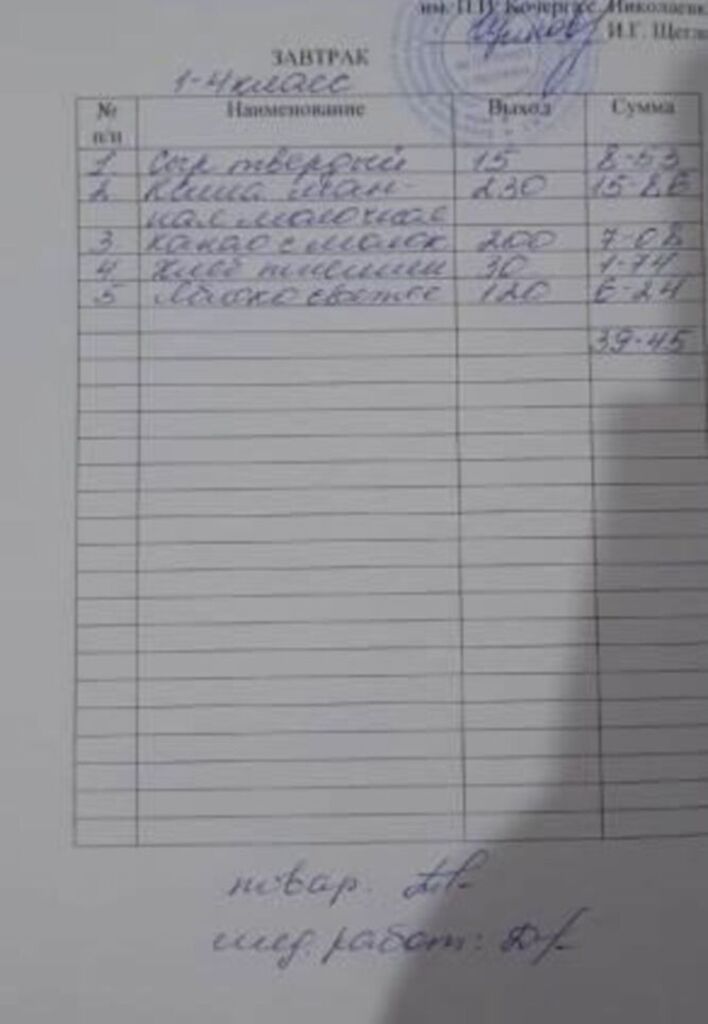 им. П.И. Кочерг с. Николаевк
И.Г. Щегл
ЗАВТРАК
1-4 класс
№ п/п Наименование Выход Сумма
1 Сыр твердый 15 8-53
2 Каша ман- 230 15-86
ная молочная
3 Какао с молок 200 7-08
4 Хлеб пшенич 30 1-74
5 Яблоко свежее 120 6-24
39-45
повар.
мед. работ: